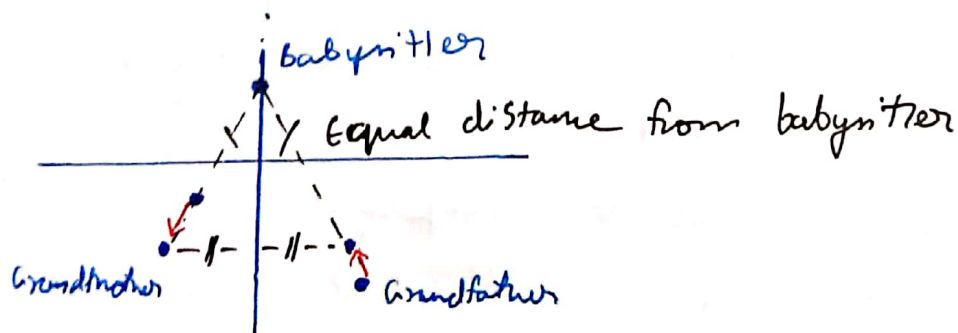 Babysitter
Equal distance from babysitter
Grandmother
Grandfather